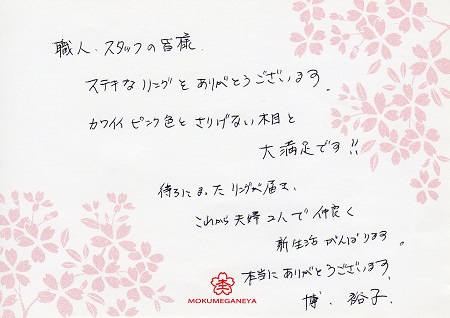 職人、スタッフの皆様
ステキなリングをありがとうございます。
カワイイピンク色とさりげない木目と
大満足です!!
待ちにまったリングが届き、
これから夫婦2人で仲良く
新生活がんばります。
本当にありがとうございます。
博、裕子.
MOKUMEGANEYA